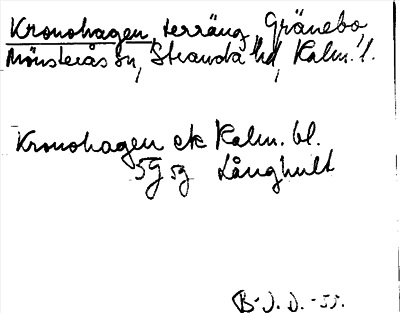 Kronohagen, terräng, Gränebo,
Mönsterås sn, Stranda hd, Kalm. l.
Kronohagen ek Kalm. bl.
5g sg Långhult
B-J. D. -55.